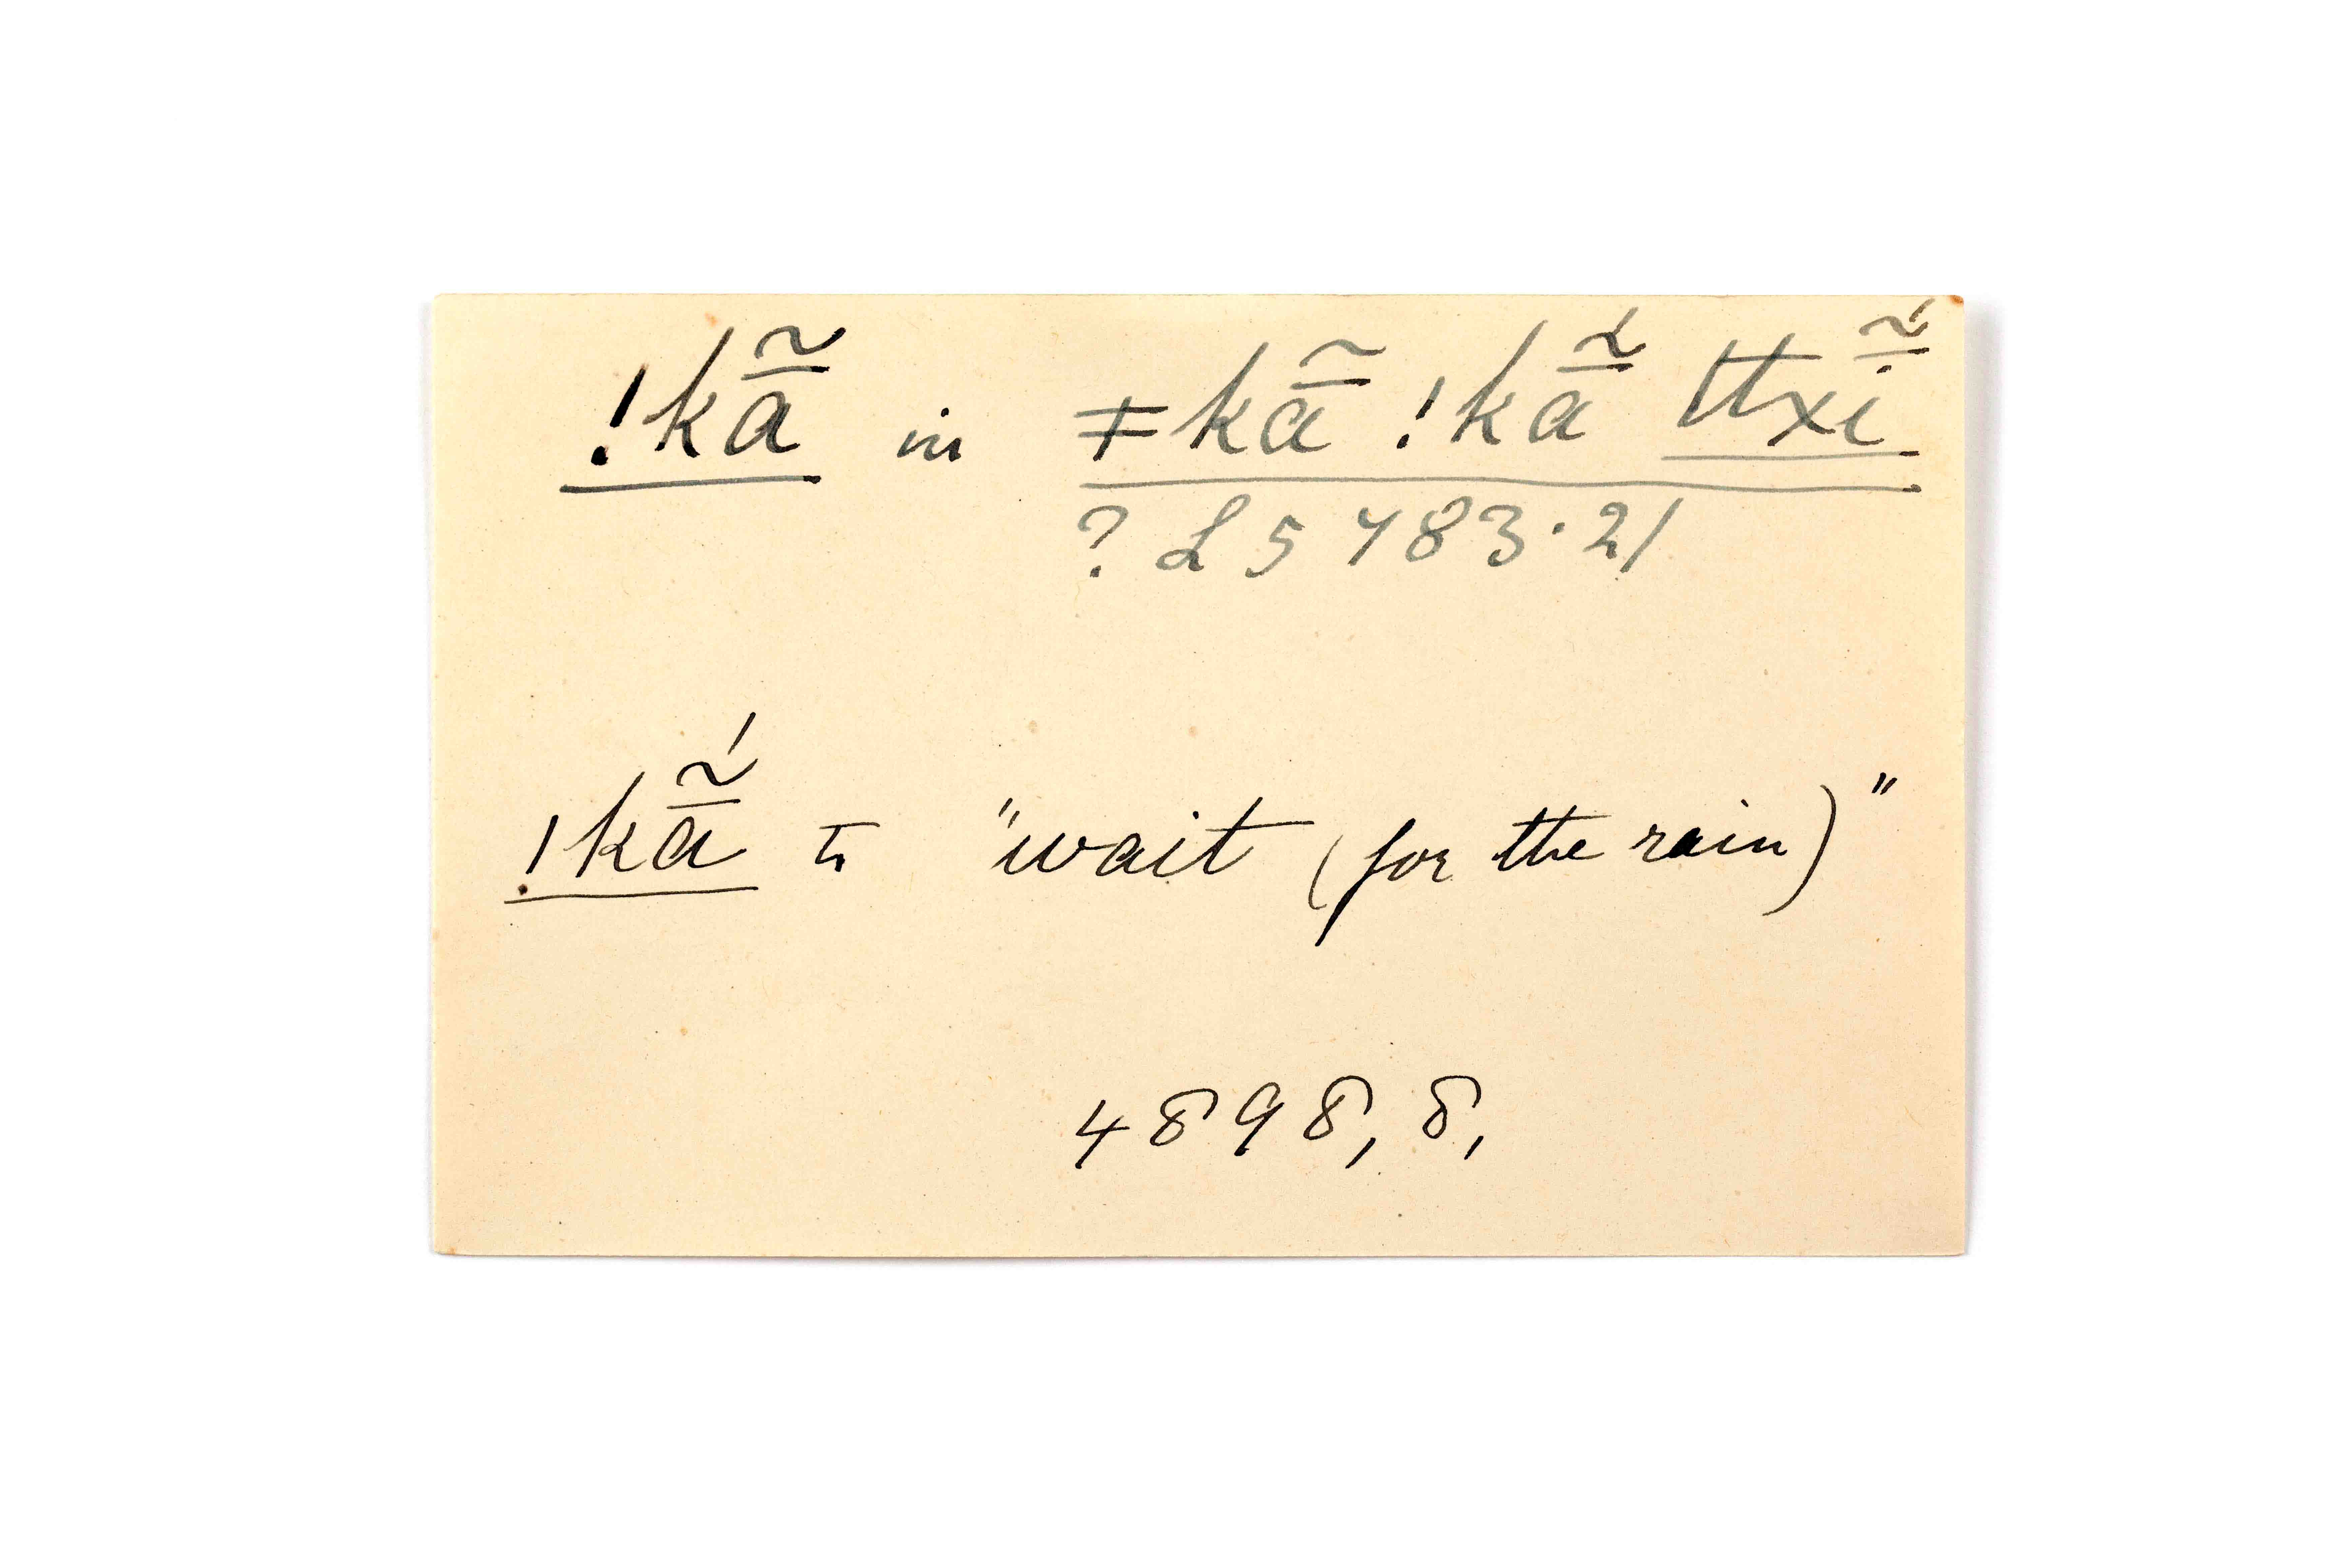 !kã̄ in ǂkã̄ !kã̄́ ttxĩ̄́
? L 5 483·21
!kã̄́ to "wait (for the rain)"
4898, 8,